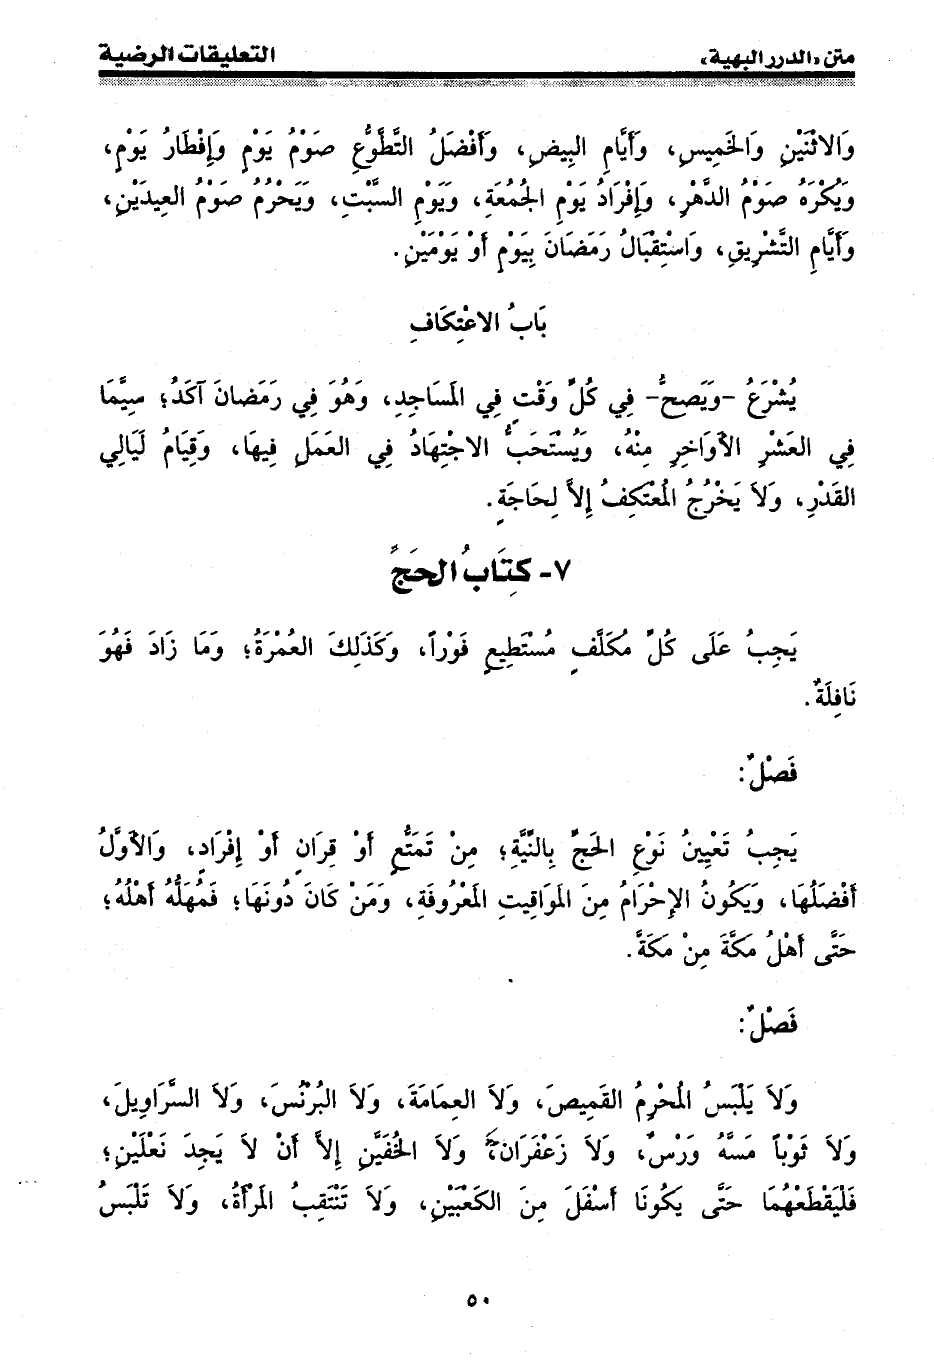 متن «الدرر البهية» التعليقات الرضية
وَالاثْنَيْنِ وَالخَمِيسِ، وَأَيَّامِ البِيضِ، وَأَفْضَلُ التَّطَوُّعِ صَوْمُ يَوْمٍ وَإِفْطَارُ يَوْمٍ،
وَيُكْرَهُ صَوْمُ الدَّهْرِ، وَإِفْرَادُ يَوْمِ الجُمُعَةِ، وَيَوْمِ السَّبْتِ، وَيَحْرُمُ صَوْمُ العِيدَيْنِ،
وَأَيَّامِ التَّشْرِيقِ، وَاسْتِقْبَالُ رَمَضَانَ بِيَوْمٍ أَوْ يَوْمَيْنِ.
بَابُ الاعْتِكَافِ
يُشْرَعُ -وَيَصحُّ- فِي كُلِّ وَقْتٍ فِي المَسَاجِدِ، وَهُوَ فِي رَمَضانَ آكَدُ؛ سِيَّمَا
فِي العَشْرِ الأَوَاخِرِ مِنْهُ، وَيُسْتَحَبُّ الاجْتِهَادُ فِي العَمَلِ فِيهَا، وَقِيَامُ لَيَالِي
القَدْرِ، وَلاَ يَخْرُجُ المُعْتَكِفُ إِلاَّ لِحَاجَةٍ.
٧- كِتَابُ الحَجِّ
يَجِبُ عَلَى كُلِّ مُكَلَّفٍ مُسْتَطِيعٍ فَوْراً، وَكَذَلِكَ العُمْرَةُ؛ وَمَا زَادَ فَهُوَ
نَافِلَةٌ.
فَصْلٌ:
يَجِبُ تَعْيِينُ نَوْعِ الحَجِّ بِالنِّيَّةِ؛ مِنْ تَمَتُّعٍ أَوْ قِرَانٍ أَوْ إِفْرَادٍ، وَالأَوَّلُ
أَفْضَلُهَا، وَيَكُونُ الإِحْرَامُ مِنَ المَوَاقِيتِ المَعْرُوفَةِ، وَمَنْ كَانَ دُونَهَا؛ فَمُهَلُّهُ أَهْلُهُ؛
حَتَّى أَهْلُ مَكَّةَ مِنْ مَكَةَّ.
فَصْلٌ:
وَلاَ يَلْبَسُ المُحْرِمُ القَمِيصَ، وَلاَ العِمَامَةَ، وَلاَ البُرْنُسَ، وَلاَ السَّرَاوِيلَ،
وَلاَ ثَوْباً مَسَّهُ وَرْسٌ، وَلاَ زَعْفَرَان، وَلاَ الخُفَيَّنِ إِلاَّ أَنْ لاَ يَجِدَ نَعْلَيْنِ؛
فَلْيَقْطَعْهُمَا حَتَّى يَكُونَا أَسْفَلَ مِنَ الكَعْبَيْنِ، وَلاَ تَنْتَقِبُ المَرْأَةُ، وَلاَ تَلْبَسُ
٥٠